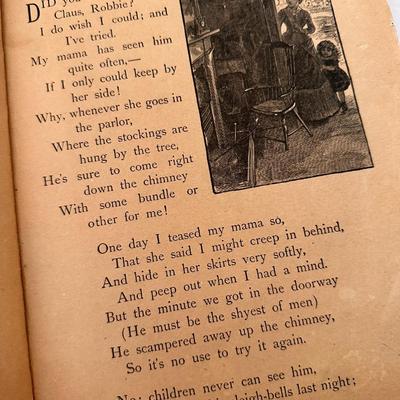 DID you
Claus, Robbie?
I do wish I could; and
I've tried.
My mama has seen him
quite often,—
If I only could keep by
her side!
Why, whenever she goes in
the parlor,
Where the stockings are
hung by the tree,
He's sure to come right
down the chimney
With some bundle or
other for me!
One day I teased my mama so,
That she said I might creep in behind,
And hide in her skirts very softly,
And peep out when I had a mind.
But the minute we got in the doorway
(He must be the shyest of men)
He scampered away up the chimney,
So it's no use to try it again.
No; children never can see him,
sleigh-bells last night;